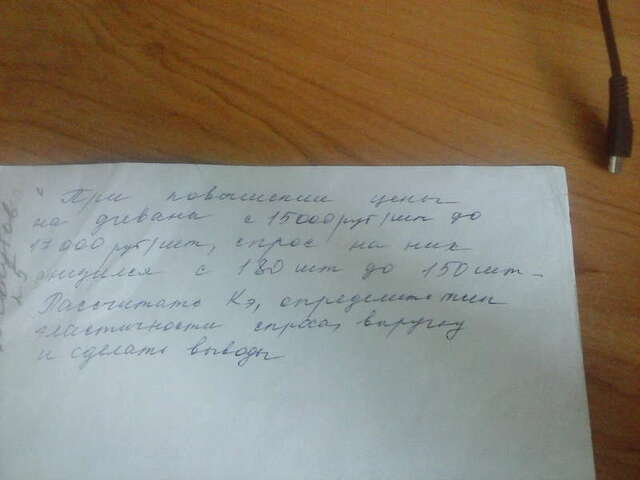 " При повышении цены
на дивана с 15000 руб/шт до
17000 руб/шт, спрос на них
снизился с 180 шт до 150 шт.
Рассчитать Кэ, определите тип
эластичности спроса, выручку
и сделать выводы